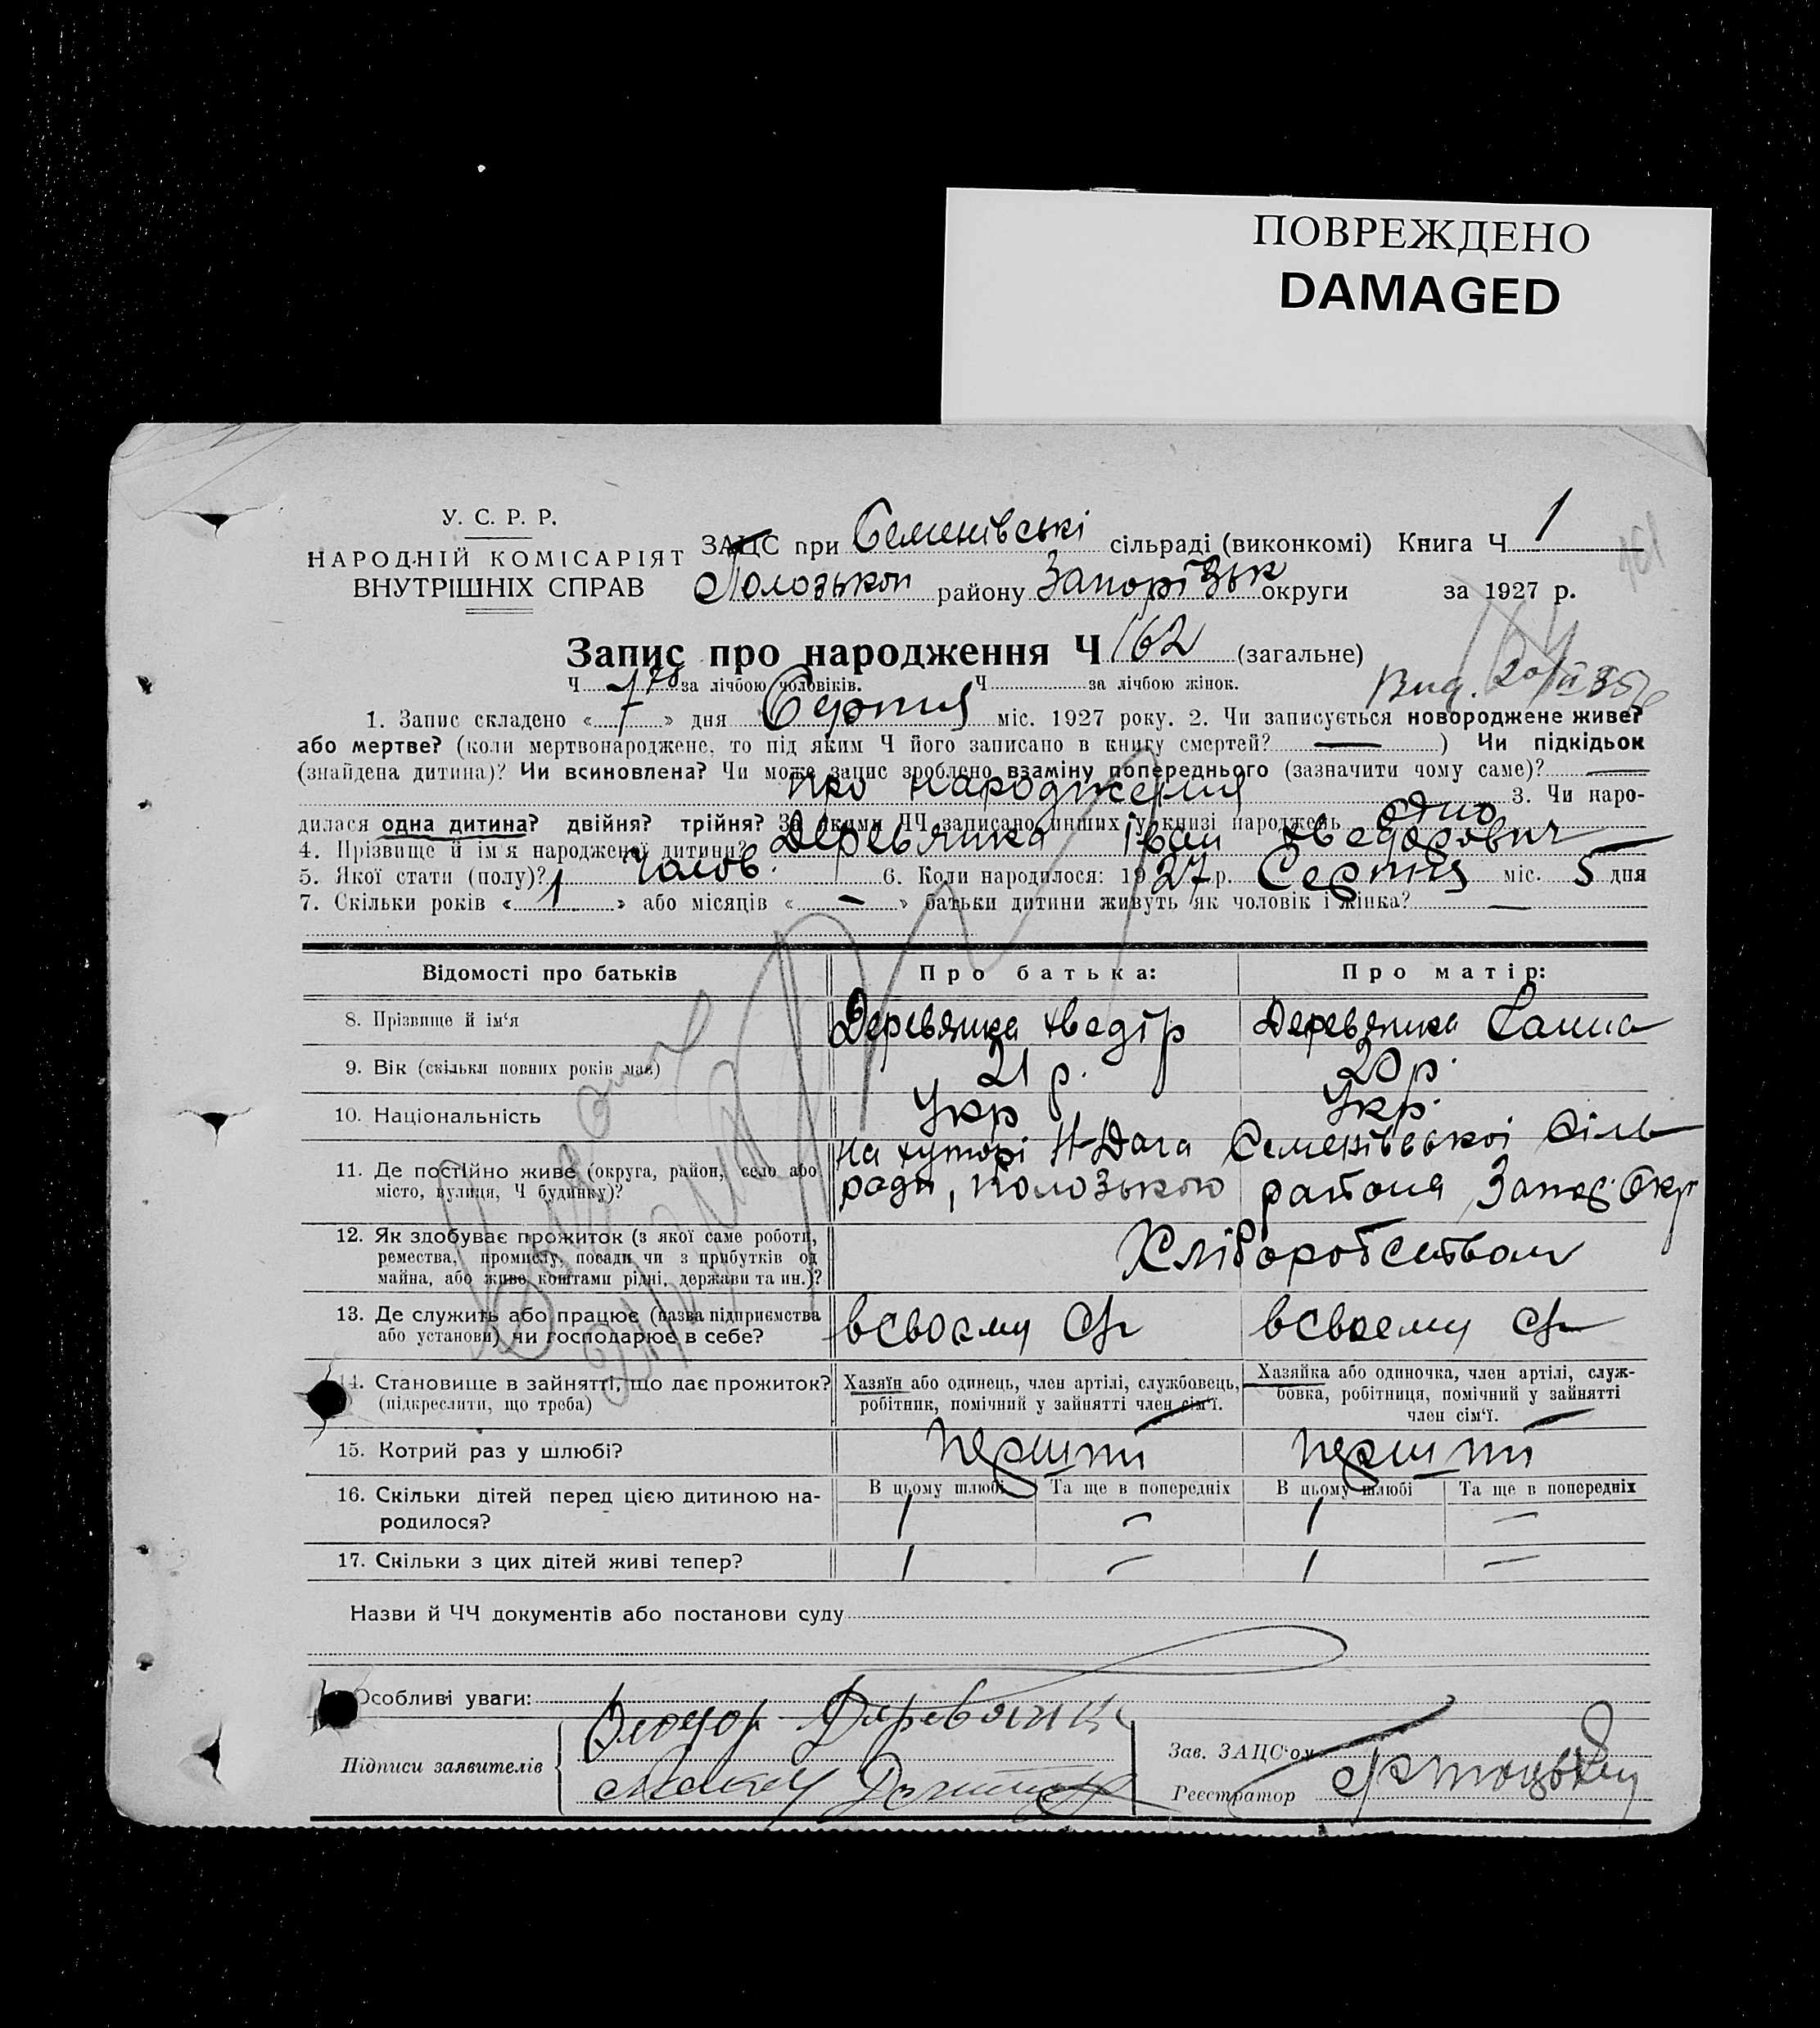 ПОВРЕЖДЕНО
DAMAGED
У. С. Р. Р.
НАРОДНІЙ КОМІСАРІЯТ
ВНУТРІШНІХ СПРАВ
ЗАЦС при Семенівські сільраді (виконкомі) Книга Ч 1
Полозькой району Запорізьк округи за 1927 р.
Запис про народження Ч 162 (загальне)
Ч. за лічбою чоловіків. Ч за лічбою жінок.
1. Запис складено « 7 » дня Серпня міс. 1927 року. 2. Чи записується новороджене живе?
або мертве? (коли мертвонароджене, то під яким Ч його записано в книгу смертей? — ) Чи підкідьок
(знайдена дитина)? Чи всиновлена? Чи може запис зроблено взаміну попереднього (зазначити чому саме)? —
про народження 3. Чи наро-
дилася одна дитина? двійня? трійня? За якими ЧЧ записано инших у книзі народжень одно
4. Прізвище й ім'я народженої дитини? Деревянка Іван Хведорович
5. Якої стати (полу)? Чолов. 6. Коли народилося: 1927 р. Серпня міс. 5 дня
7. Скільки років « 1 » або місяців « — » батьки дитини живуть як чоловік і жінка? —
Відомості про батьків Про батька: Про матір:
8. Прізвище й ім'я Деревянка Хведір Деревянка Ганна
9. Вік (скільки повних років має) 21 р. 20 р.
10. Національність Укр Укр.
11. Де постійно живе (округа, район, село або на хуторі Н-Дача Семенівської Сіль
місто, вулиця, Ч будинку)? ради, Полозького района Запор. Окр
12. Як здобуває прожиток (з якої саме роботи,
ремества, промислу, посади чи з прибутків од Хліборобством
майна, або живе коштами рідні, держави та ин.)?
13. Де служить або працює (назва підприємства всвоєму всвоєму
або установи) чи господарює в себе?
14. Становище в зайнятті, що дає прожиток? Хазяїн або одинець, член артілі, службовець, Хазяйка або одиночка, член артілі, служ-
(підкреслити, що треба) робітник, помічний у зайнятті член сім'ї. бовка, робітниця, помічний у зайнятті
член сім'ї.
15. Котрий раз у шлюбі? перший перший
16. Скільки дітей перед цією дитиною на- В цьому шлюбі Та ще в попередніх В цьому шлюбі Та ще в попередніх
родилося? 1 — 1 —
17. Скільки з цих дітей живі тепер? 1 — 1 —
Назви й ЧЧ документів або постанови суду
Особливі уваги:
Підписи заявителів Деревянка
Зав. ЗАЦС'ом
Реєстратор